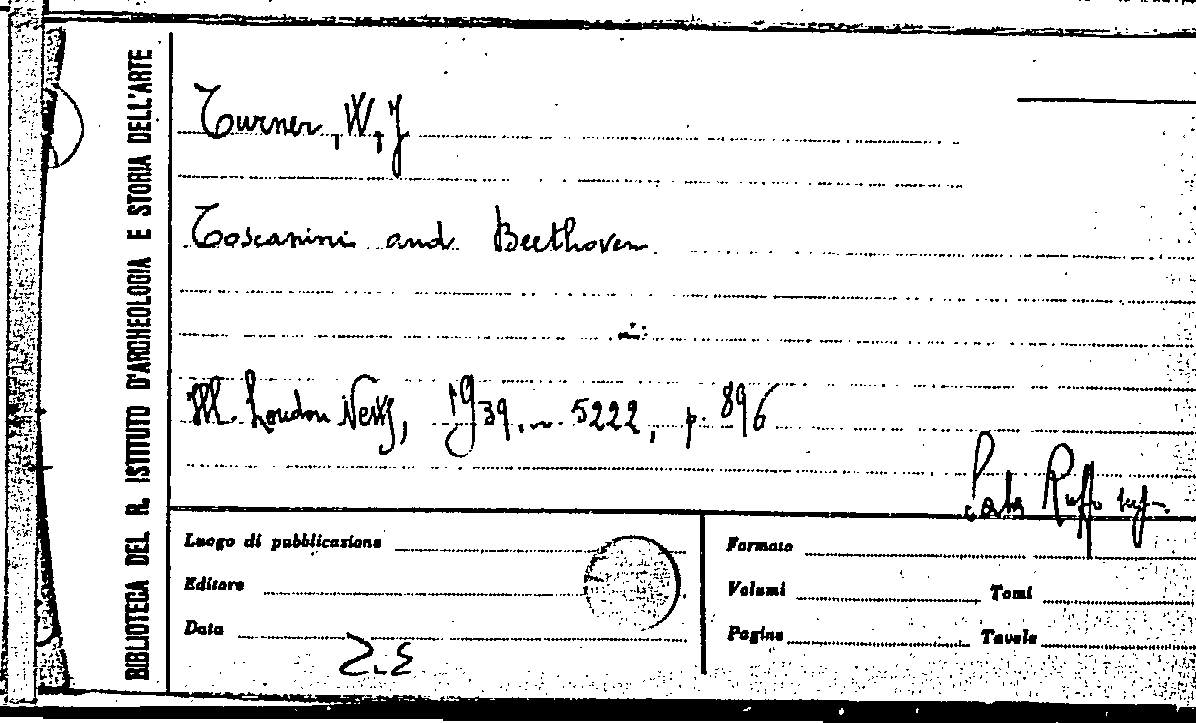 BIBLIOTECA DEL R. ISTITUTO D'ARCHEOLOGIA E STORIA DELL'ARTE
Turner, W, J
Toscanini and Beethoven.
Ill. London News, 1939, n. 5222, p. 896
Ruffo
Luogo di pubblicazione
Editore
Data
Formato
Volumi Tomi
Pagine Tavole